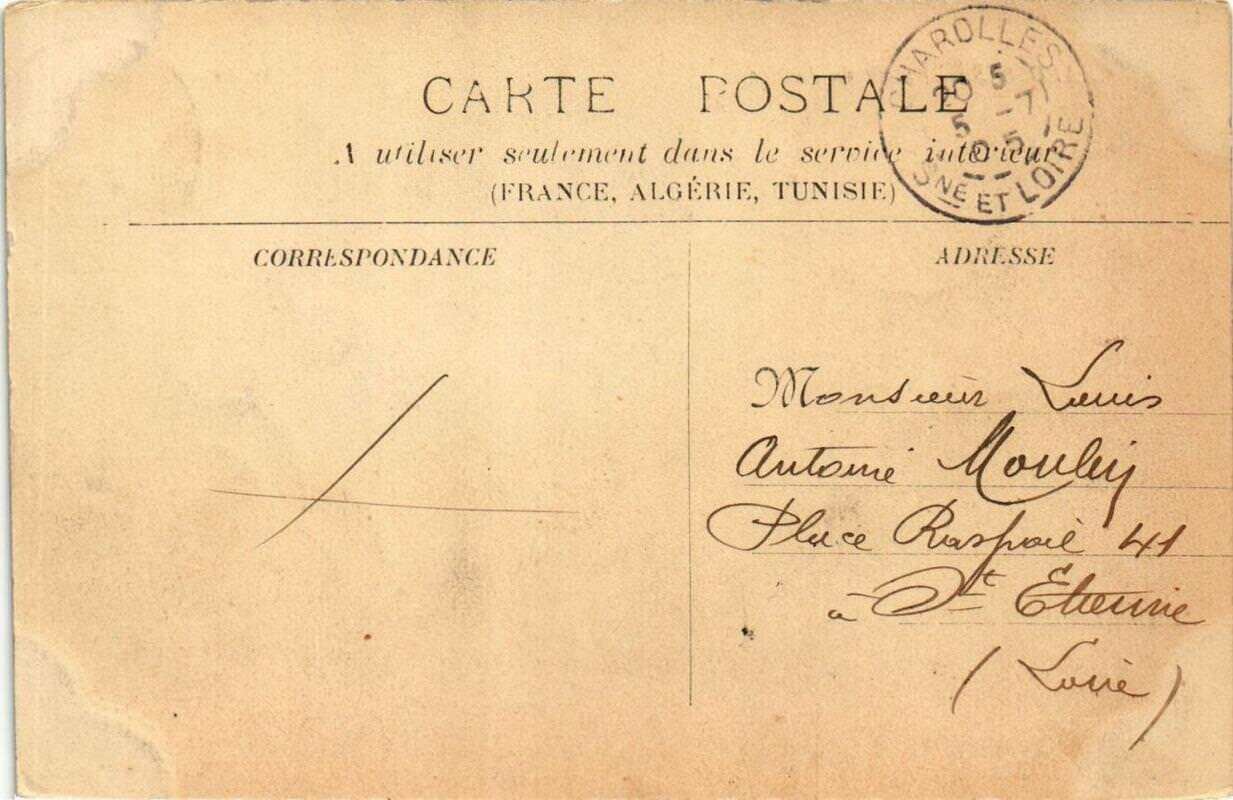 CARTE POSTALE
A utiliser seulement dans le service intérieur
(FRANCE, ALGÉRIE, TUNISIE)
CHAROLLES
5
-7
5
05
SNE ET LOIRE
CORRESPONDANCE
ADRESSE
Monsieur Louis
Antoine Moulin
Place Raspail 41
à St Etienne
(Loire)